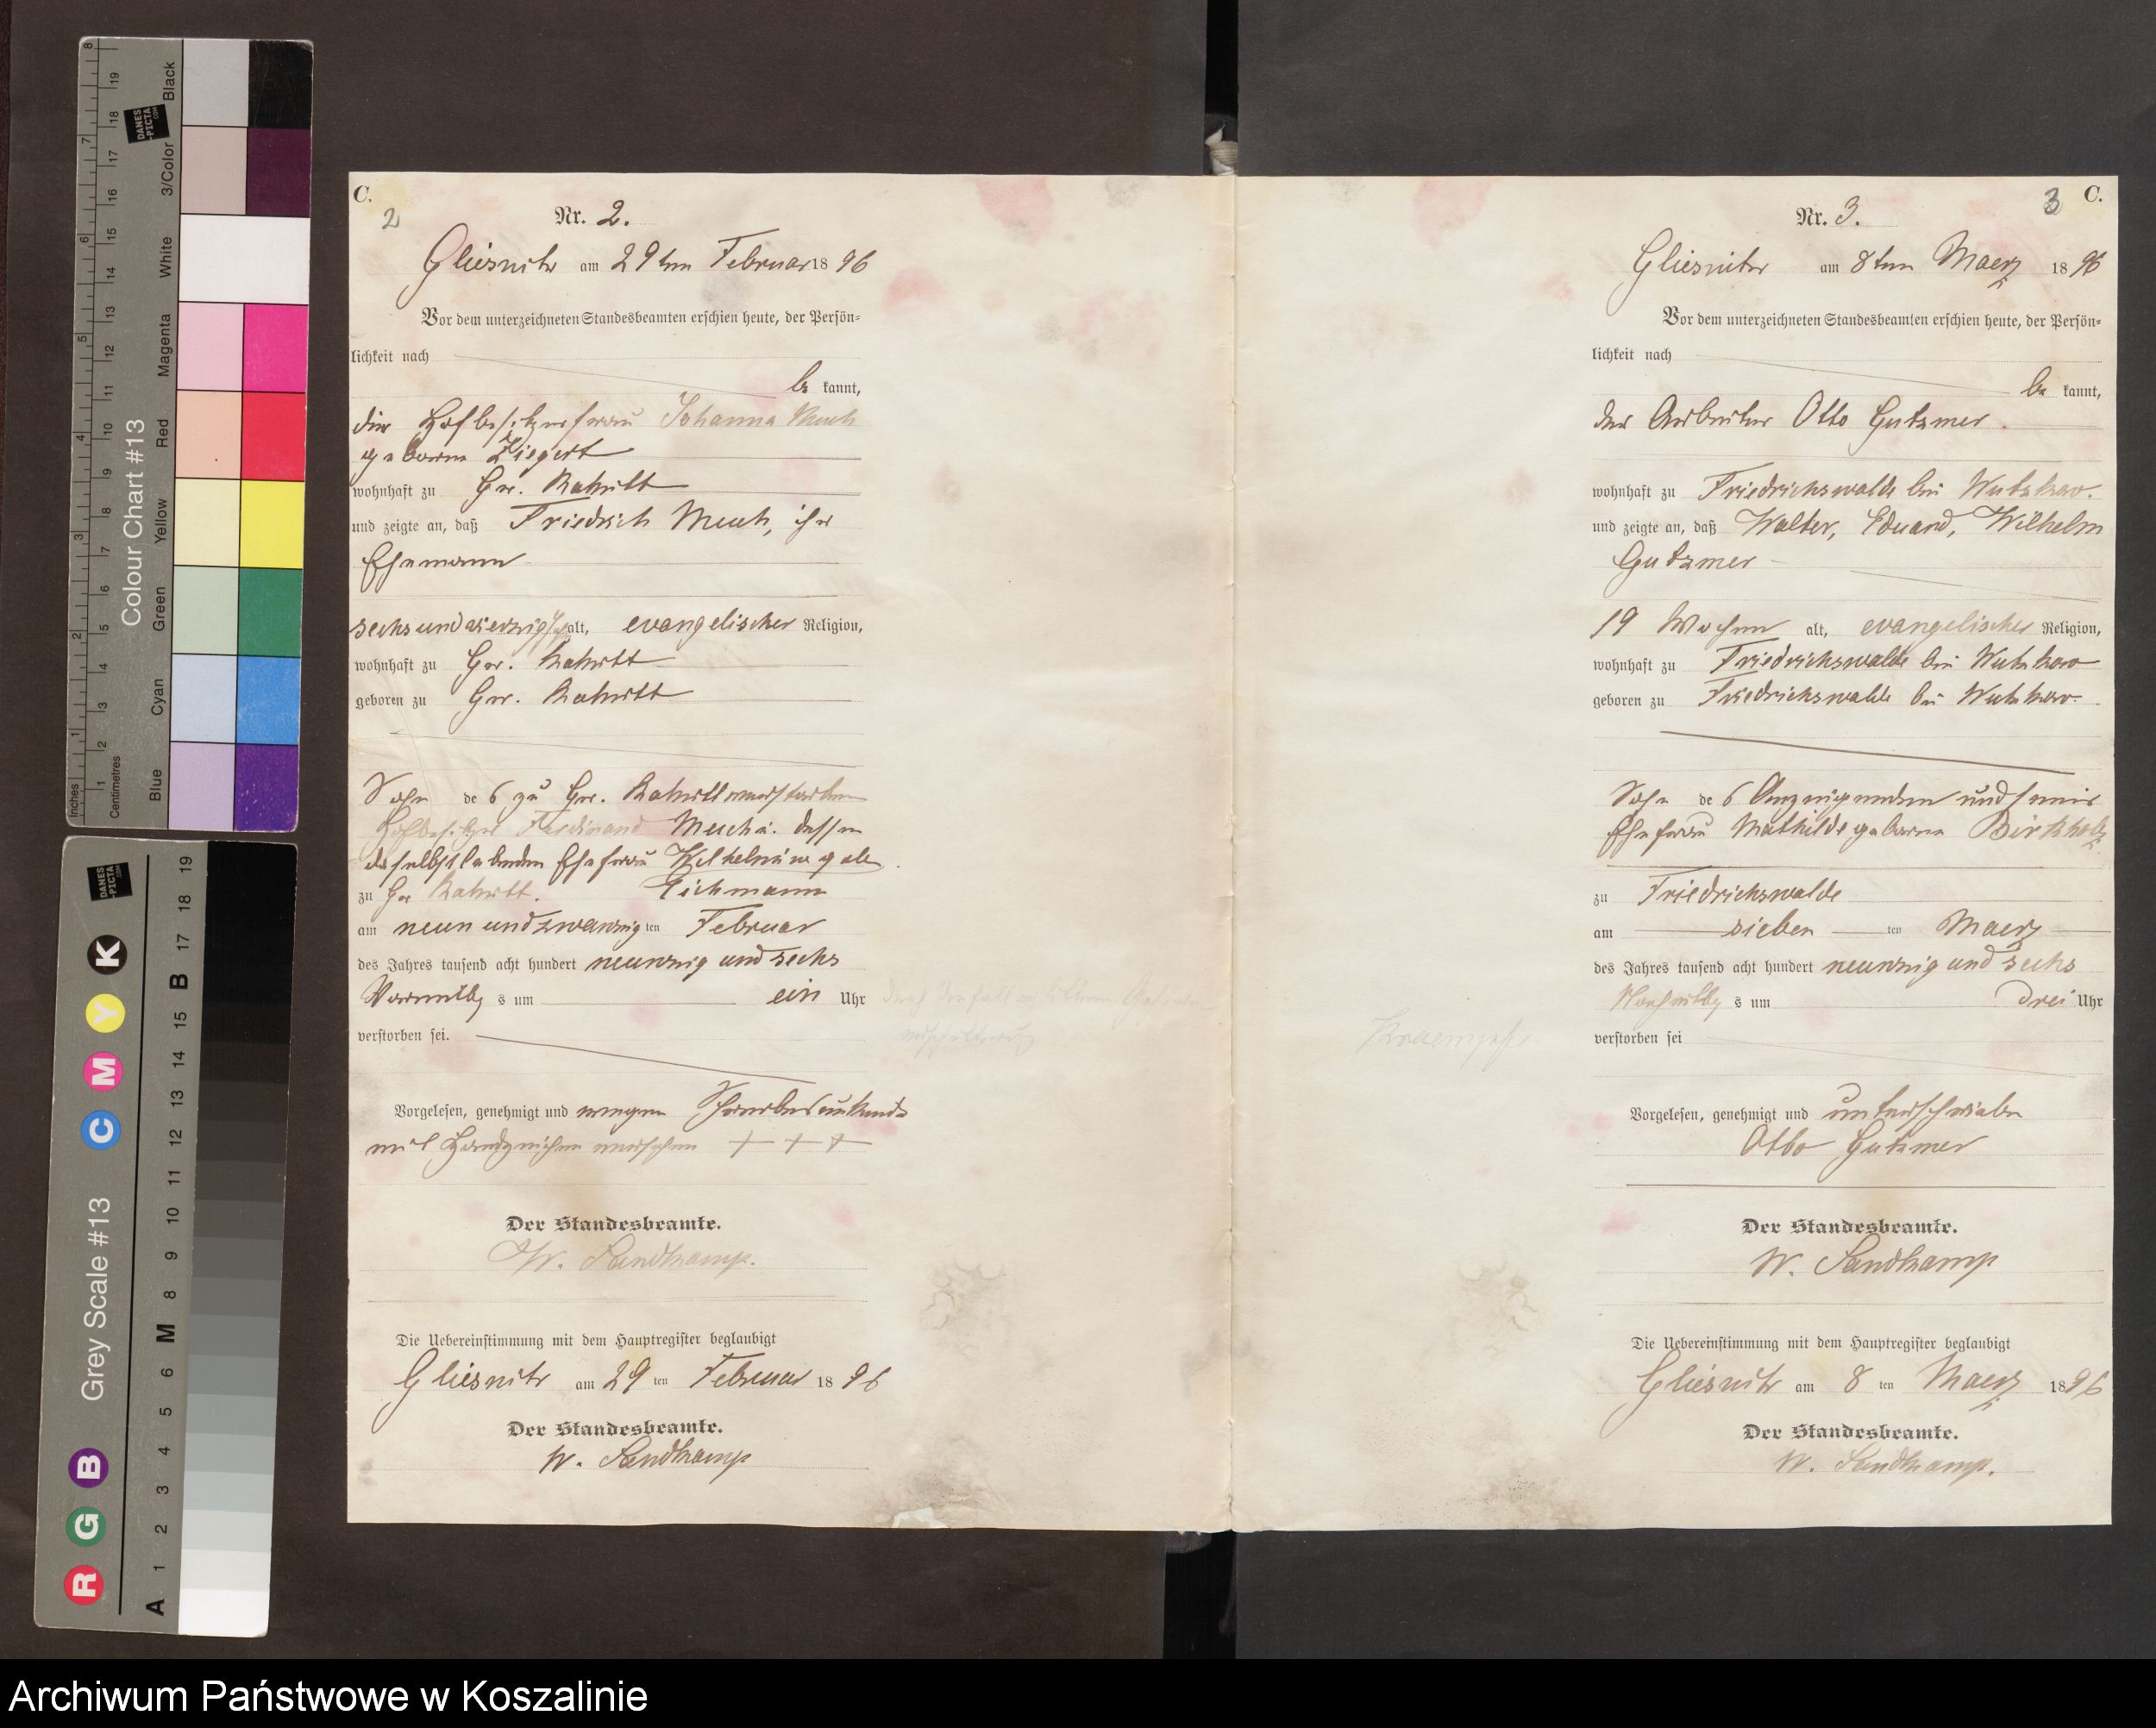 C.
2
Nr. 2.
Gliesnitz am 29ten Februar 1896
Vor dem unterzeichneten Standesbeamten erschien heute, der Persön-
lichkeit nach
be kannt,
die Hofbesitzerfrau Johanna Much
geborne Ziegert
wohnhaft zu Gr. Rakitt
und zeigte an, daß Friedrich Much, ihr
Ehemann
sechsundvierzig J. alt, evangelischer Religion,
wohnhaft zu Gr. Rakitt
geboren zu Gr. Rakitt
Sohn des zu Gr. Rakitt verstorbenen
Hofbesitzer Ferdinand Much u. dessen
daselbst lebenden Ehefrau Wilhelmine geb
zu Gr Rakitt. Eichmann
am neunundzwanzigten Februar
des Jahres tausend acht hundert neunzig und sechs
Vormittags um ein Uhr
verstorben sei.
Vorgelesen, genehmigt und wegen Schreibensunkunde
mit Handzeichen versehen + + +
Der Standesbeamte.
W. Sandkamp.
Die Uebereinstimmung mit dem Hauptregister beglaubigt
Gliesnitz am 29ten Februar 1896
Der Standesbeamte.
W. Sandkamp
3 C.
Nr. 3.
Gliesnitz am 8ten Maerz 1896
Vor dem unterzeichneten Standesbeamten erschien heute, der Persön-
lichkeit nach
be kannt,
der Arbeiter Otto Gutzmer.
wohnhaft zu Friedrichswalde bei Wutzkow.
und zeigte an, daß Walter, Eduard, Wilhelm
Gutzmer
19 Wochen alt, evangelischer Religion,
wohnhaft zu Friedrichswalde bei Wutzkow
geboren zu Friedrichswalde bei Wutzkow.
Sohn des Anzeigenden und seiner
Ehefrau Mathilde geborne Birkholz
zu Friedrichswalde
am sieben ten Maerz
des Jahres tausend acht hundert neunzig und sechs
Nachmittags um drei Uhr
verstorben sei
Vorgelesen, genehmigt und unterschrieben
Otto Gutzmer
Der Standesbeamte.
W. Sandkamp
Die Uebereinstimmung mit dem Hauptregister beglaubigt
Gliesnitz am 8ten Maerz 1896
Der Standesbeamte.
W. Sandkamp.
Colour Chart #13
Blue Cyan Green Yellow Red Magenta White 3/Color Black
Inches
Centimetres
DANES-PICTA.COM
Grey Scale #13
R G B C M Y K
A 1 2 3 4 5 6 M 8 9 10 11 12 13 14 15 B 17 18 19
Archiwum Państwowe w Koszalinie